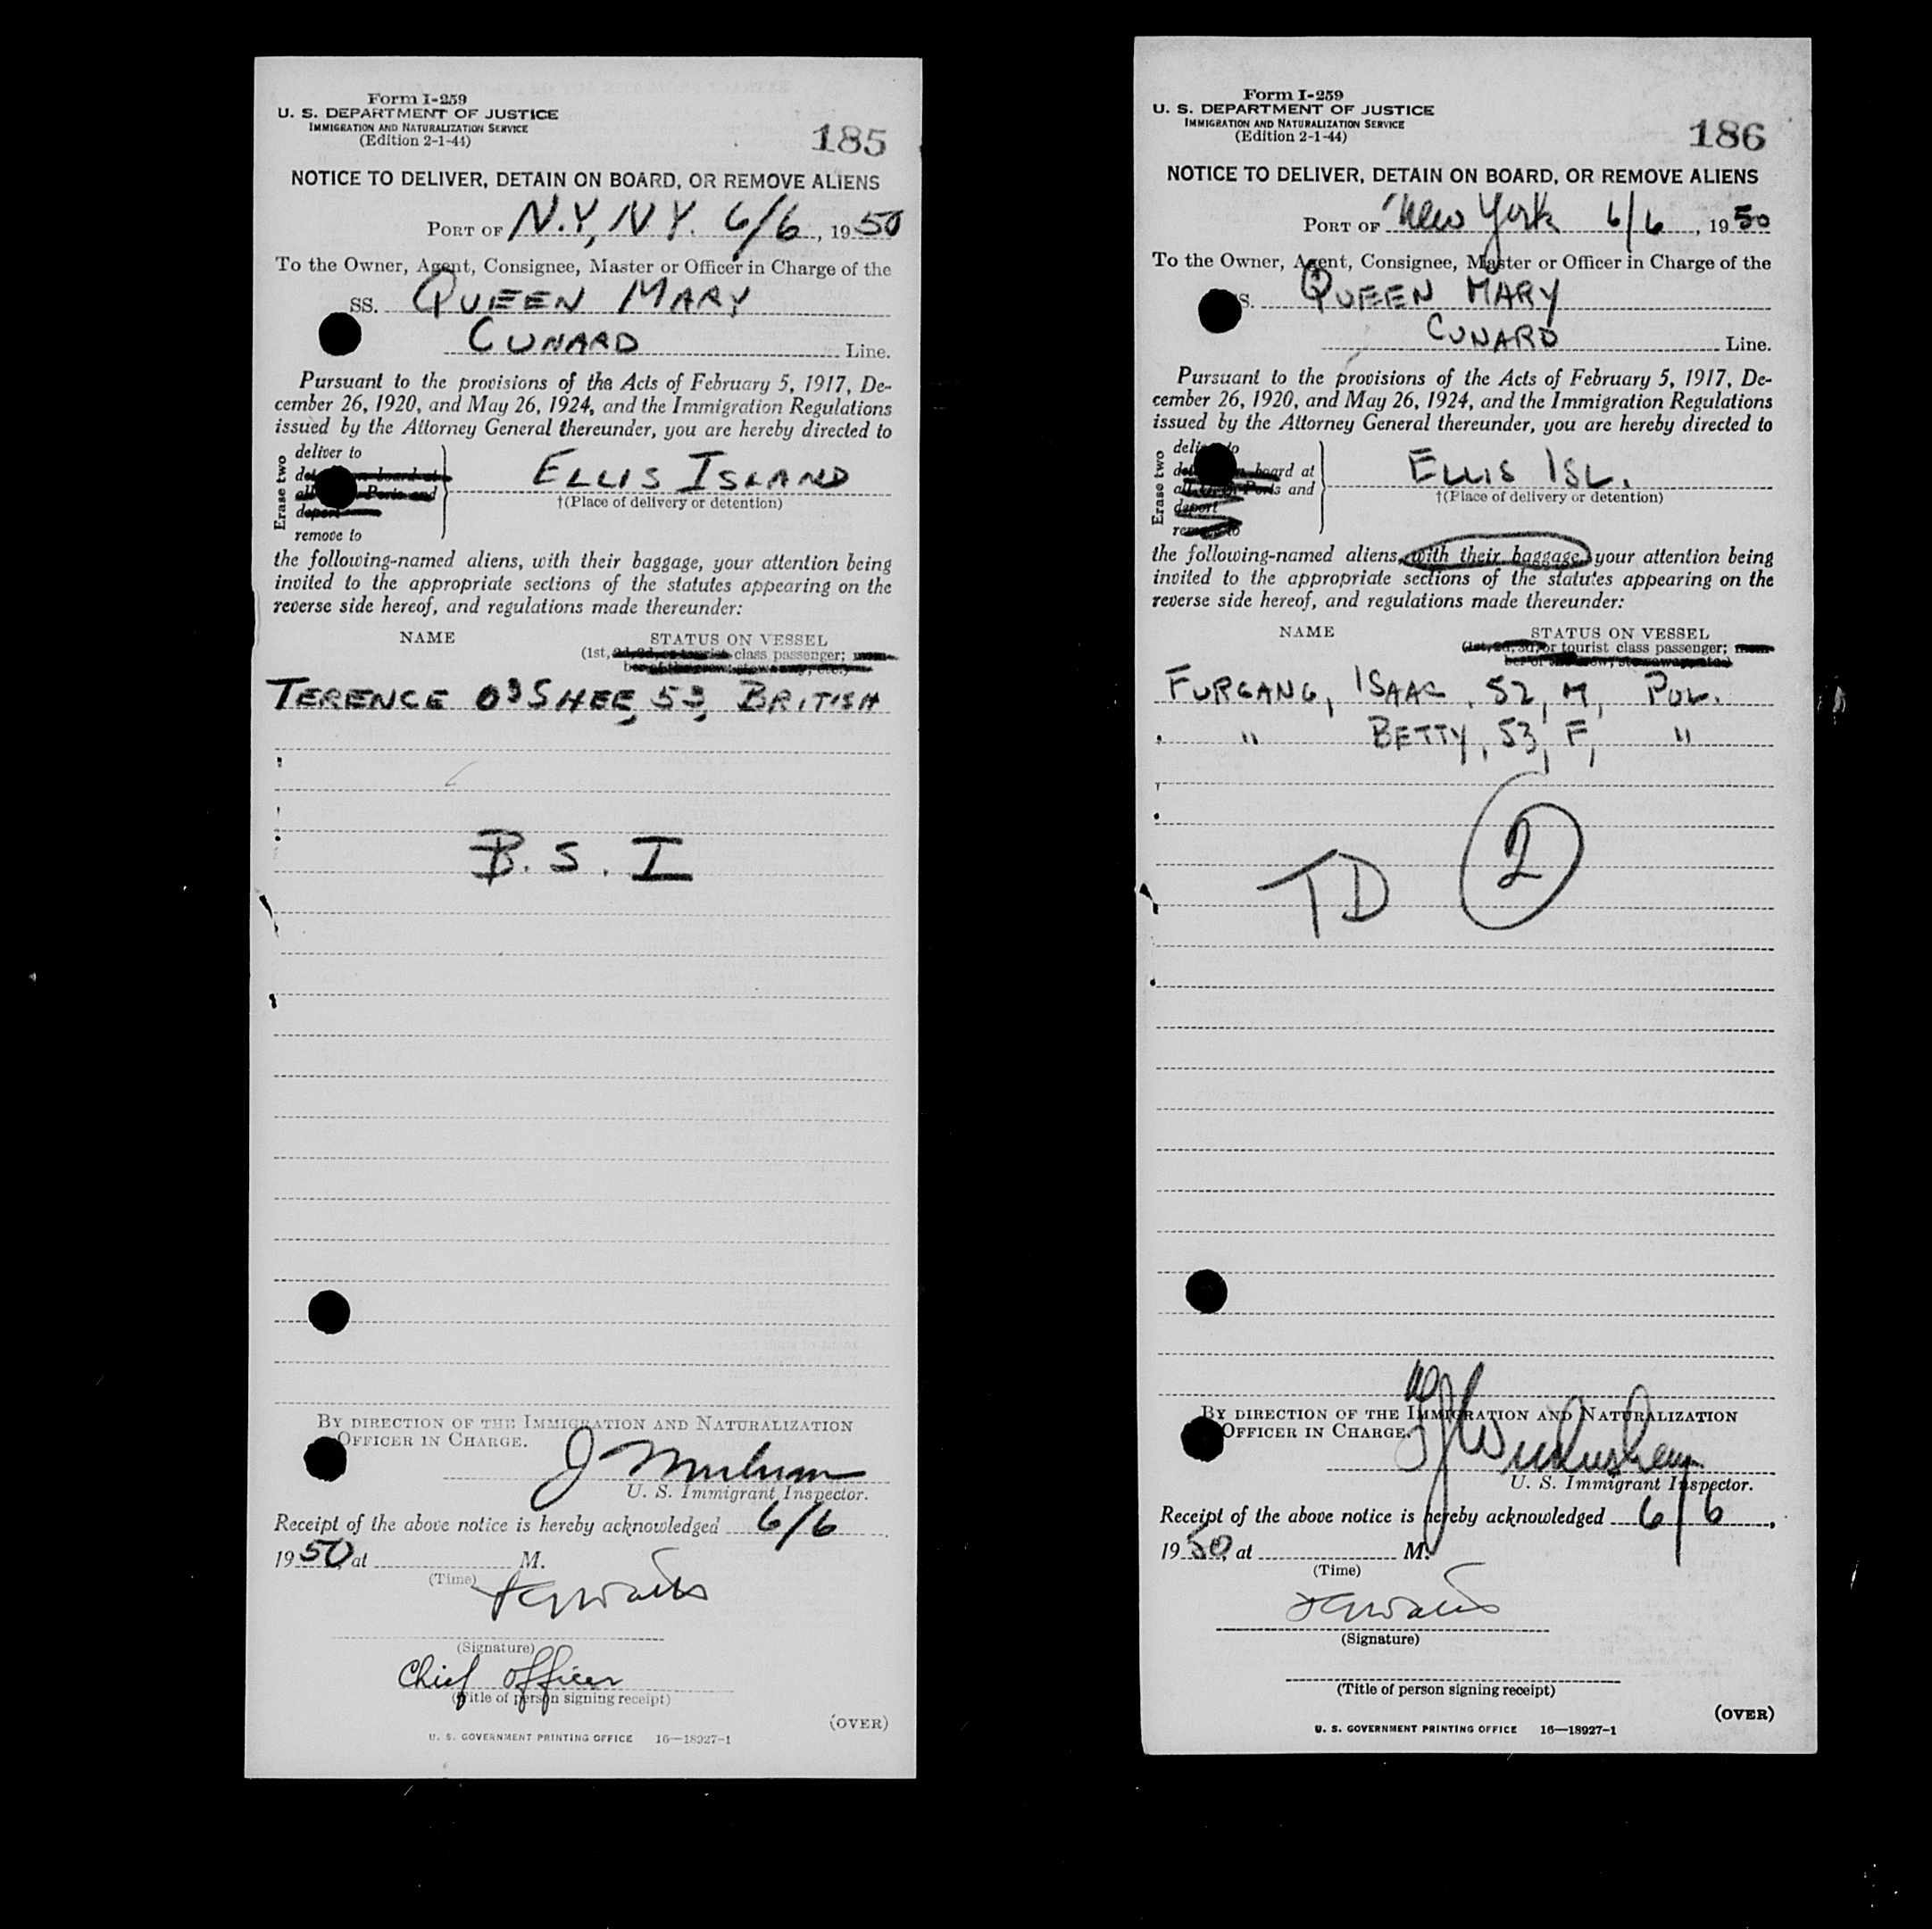 Form I-259
U. S. DEPARTMENT OF JUSTICE
IMMIGRATION AND NATURALIZATION SERVICE
(Edition 2-1-44)
185
NOTICE TO DELIVER, DETAIN ON BOARD, OR REMOVE ALIENS
PORT OF N.Y, N.Y. 6/6, 1950
To the Owner, Agent, Consignee, Master or Officer in Charge of the
SS. QUEEN MARY
CUNARD Line.
Pursuant to the provisions of the Acts of February 5, 1917, De-
cember 26, 1920, and May 26, 1924, and the Immigration Regulations
issued by the Attorney General thereunder, you are hereby directed to
Erase two
deliver to
board at
Ports and
deport
remove to
ELLIS ISLAND
†(Place of delivery or detention)
the following-named aliens, with their baggage, your attention being
invited to the appropriate sections of the statutes appearing on the
reverse side hereof, and regulations made thereunder:
NAME STATUS ON VESSEL
(1st, 2d, 3d, or tourist class passenger; mem-
ber of the crew; stowaway, etc.)
TERENCE O'SHEE, 53, BRITISH
B. S. I
BY DIRECTION OF THE IMMIGRATION AND NATURALIZATION
OFFICER IN CHARGE.
J
U. S. Immigrant Inspector.
Receipt of the above notice is hereby acknowledged 6/6,
1950, at M.
(Time)
(Signature)
Chief Officer
(Title of person signing receipt)
(OVER)
U. S. GOVERNMENT PRINTING OFFICE 16—18927-1
Form I-259
U. S. DEPARTMENT OF JUSTICE
IMMIGRATION AND NATURALIZATION SERVICE
(Edition 2-1-44)
186
NOTICE TO DELIVER, DETAIN ON BOARD, OR REMOVE ALIENS
PORT OF New York 6/6, 1950
To the Owner, Agent, Consignee, Master or Officer in Charge of the
S. QUEEN MARY
CUNARD Line.
Pursuant to the provisions of the Acts of February 5, 1917, De-
cember 26, 1920, and May 26, 1924, and the Immigration Regulations
issued by the Attorney General thereunder, you are hereby directed to
Erase two
deliver to
board at
Ports and
deport
remove to
ELLIS ISL.
†(Place of delivery or detention)
the following-named aliens, with their baggage, your attention being
invited to the appropriate sections of the statutes appearing on the
reverse side hereof, and regulations made thereunder:
NAME STATUS ON VESSEL
(1st, 2d, 3d, or tourist class passenger; mem-
ber of the crew; stowaway, etc.)
FURGANG, ISAAC, 52, M, POL.
" BETTY, 53, F, "
TD 2
BY DIRECTION OF THE IMMIGRATION AND NATURALIZATION
OFFICER IN CHARGE.
U. S. Immigrant Inspector.
Receipt of the above notice is hereby acknowledged 6/6,
1950, at M.
(Time)
(Signature)
(Title of person signing receipt)
(OVER)
U. S. GOVERNMENT PRINTING OFFICE 16—18927-1